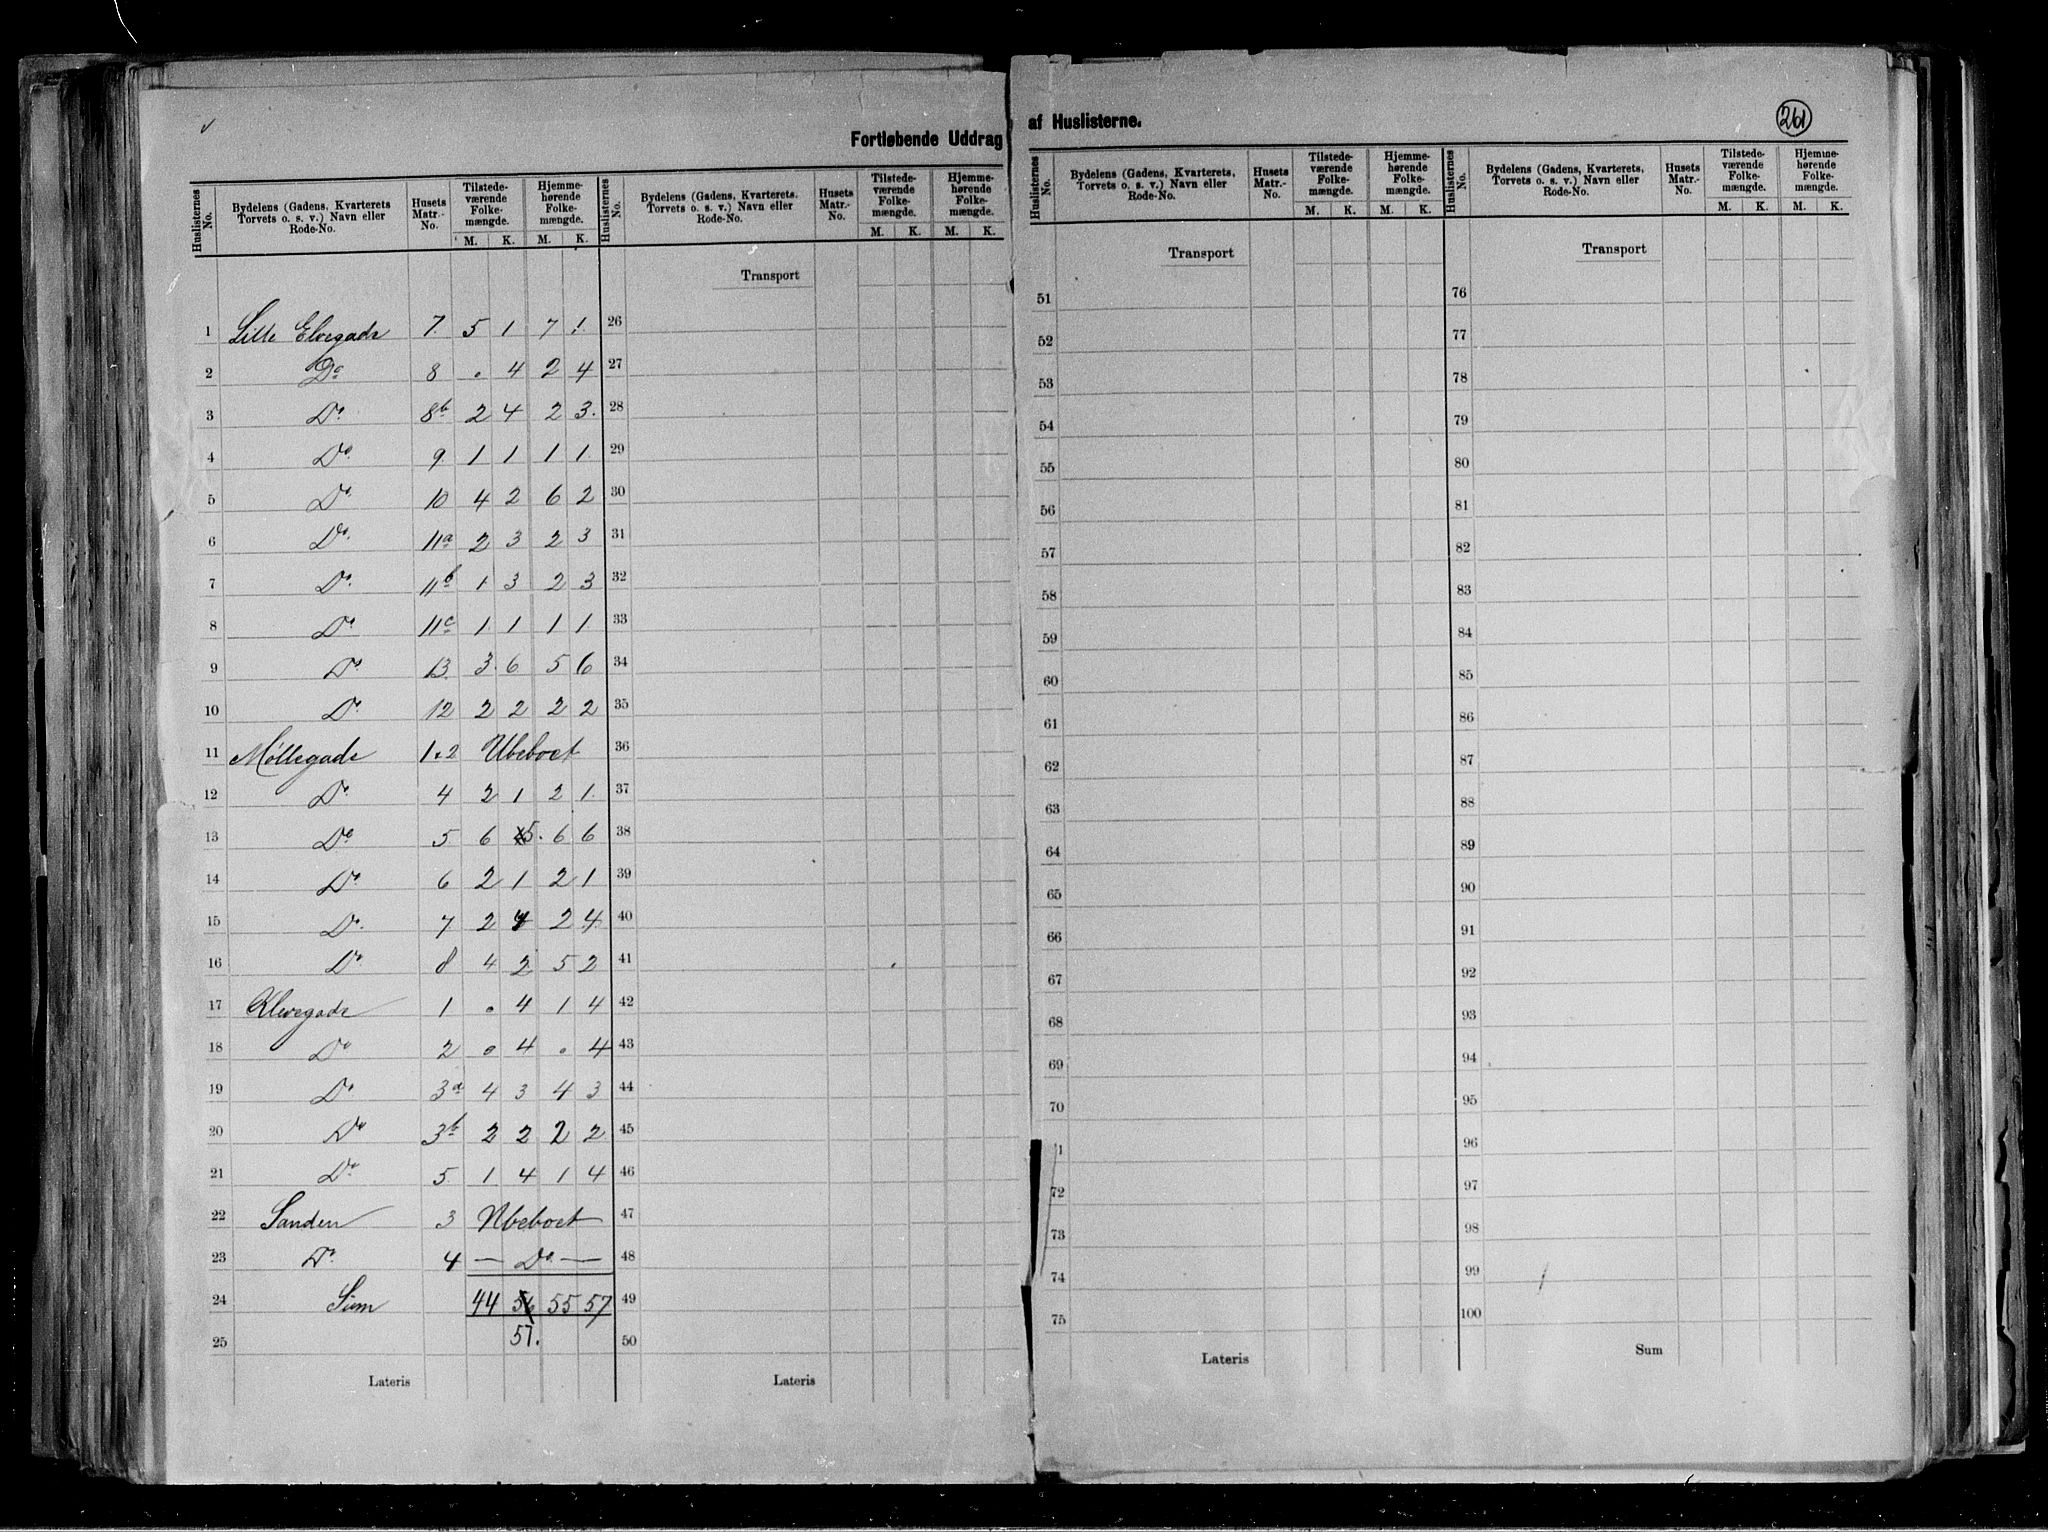 Fortløbende Uddrag af Huslisterne.
261
Huslisternes No. | Bydelens (Gadens, Kvarterets Torvets o. s. v.) Navn eller Rode-No. | Husets Matr.-No. | Tilstede-værende Folke-mængde. M. K. | Hjemme-hørende Folke-mængde. M. K.
1 Lille Elvegade 7. 5 1 7 1.
2 Do 8 . 4 2 4
3 Do 8b 2 4 2 3.
4 Do 9 1 1 1 1
5 Do 10 4 2 6 2
6 Do. 11a 2 3 2 3
7 Do. 11b 1 3 2 3
8 Do 11c 1 1 1 1
9 Do 13. 3. 6 5 6
10 Do 12 2 2 2 2
11 Møllegade 1.2 Ubeboet
12 Do 4 2 1 2 1.
13 Do 5. 6 5. 6 6
14 Do 6 2 1 2 1
15 Do. 7 2 4 2 4
16 Do 8 4 2 5 2
17 Klevegade 1 . 4 1 4
18 Do 2 . 4 . 4
19 Do 3a 4 3 4 3
20 Do 3b 2 2 2 2
21 Do 5. 1 4 1 4
22 Sanden 3 Ubeboet
23 Do. 4 — Do —
24 Sum 44 56 55 57
25 57.
Lateris
Huslisternes No. | Bydelens (Gadens, Kvarterets. Torvets o. s. v.) Navn eller Rode-No. | Husets Matr.-No. | Tilstede-værende Folke-mængde. M. K. | Hjemme-hørende Folke-mængde. M. K.
Transport
26
27
28
29
30
31
32
33
34
35
36
37
38
39
40
41
42
43
44
45
46
47
48
49
50
Lateris
Huslisternes No. | Bydelens (Gadens, Kvarterets, Torvets o. s. v.) Navn eller Rode-No. | Husets Matr.-No. | Tilstede-værende Folke-mængde. M. K. | Hjemme-hørende Folke-mængde. M. K.
Transport
51
52
53
54
55
56
57
58
59
60
61
62
63
64
65
66
67
68
69
70
71
72
73
74
75
Lateris
Huslisternes No. | Bydelens (Gadens, Kvarterets, Torvets o. s. v.) Navn eller Rode-No. | Husets Matr.-No. | Tilstede-værende Folke-mængde. M. K. | Hjemme-hørende Folke-mængde. M. K.
Transport
76
77
78
79
80
81
82
83
84
85
86
87
88
89
90
91
92
93
94
95
96
97
98
99
100
Sum